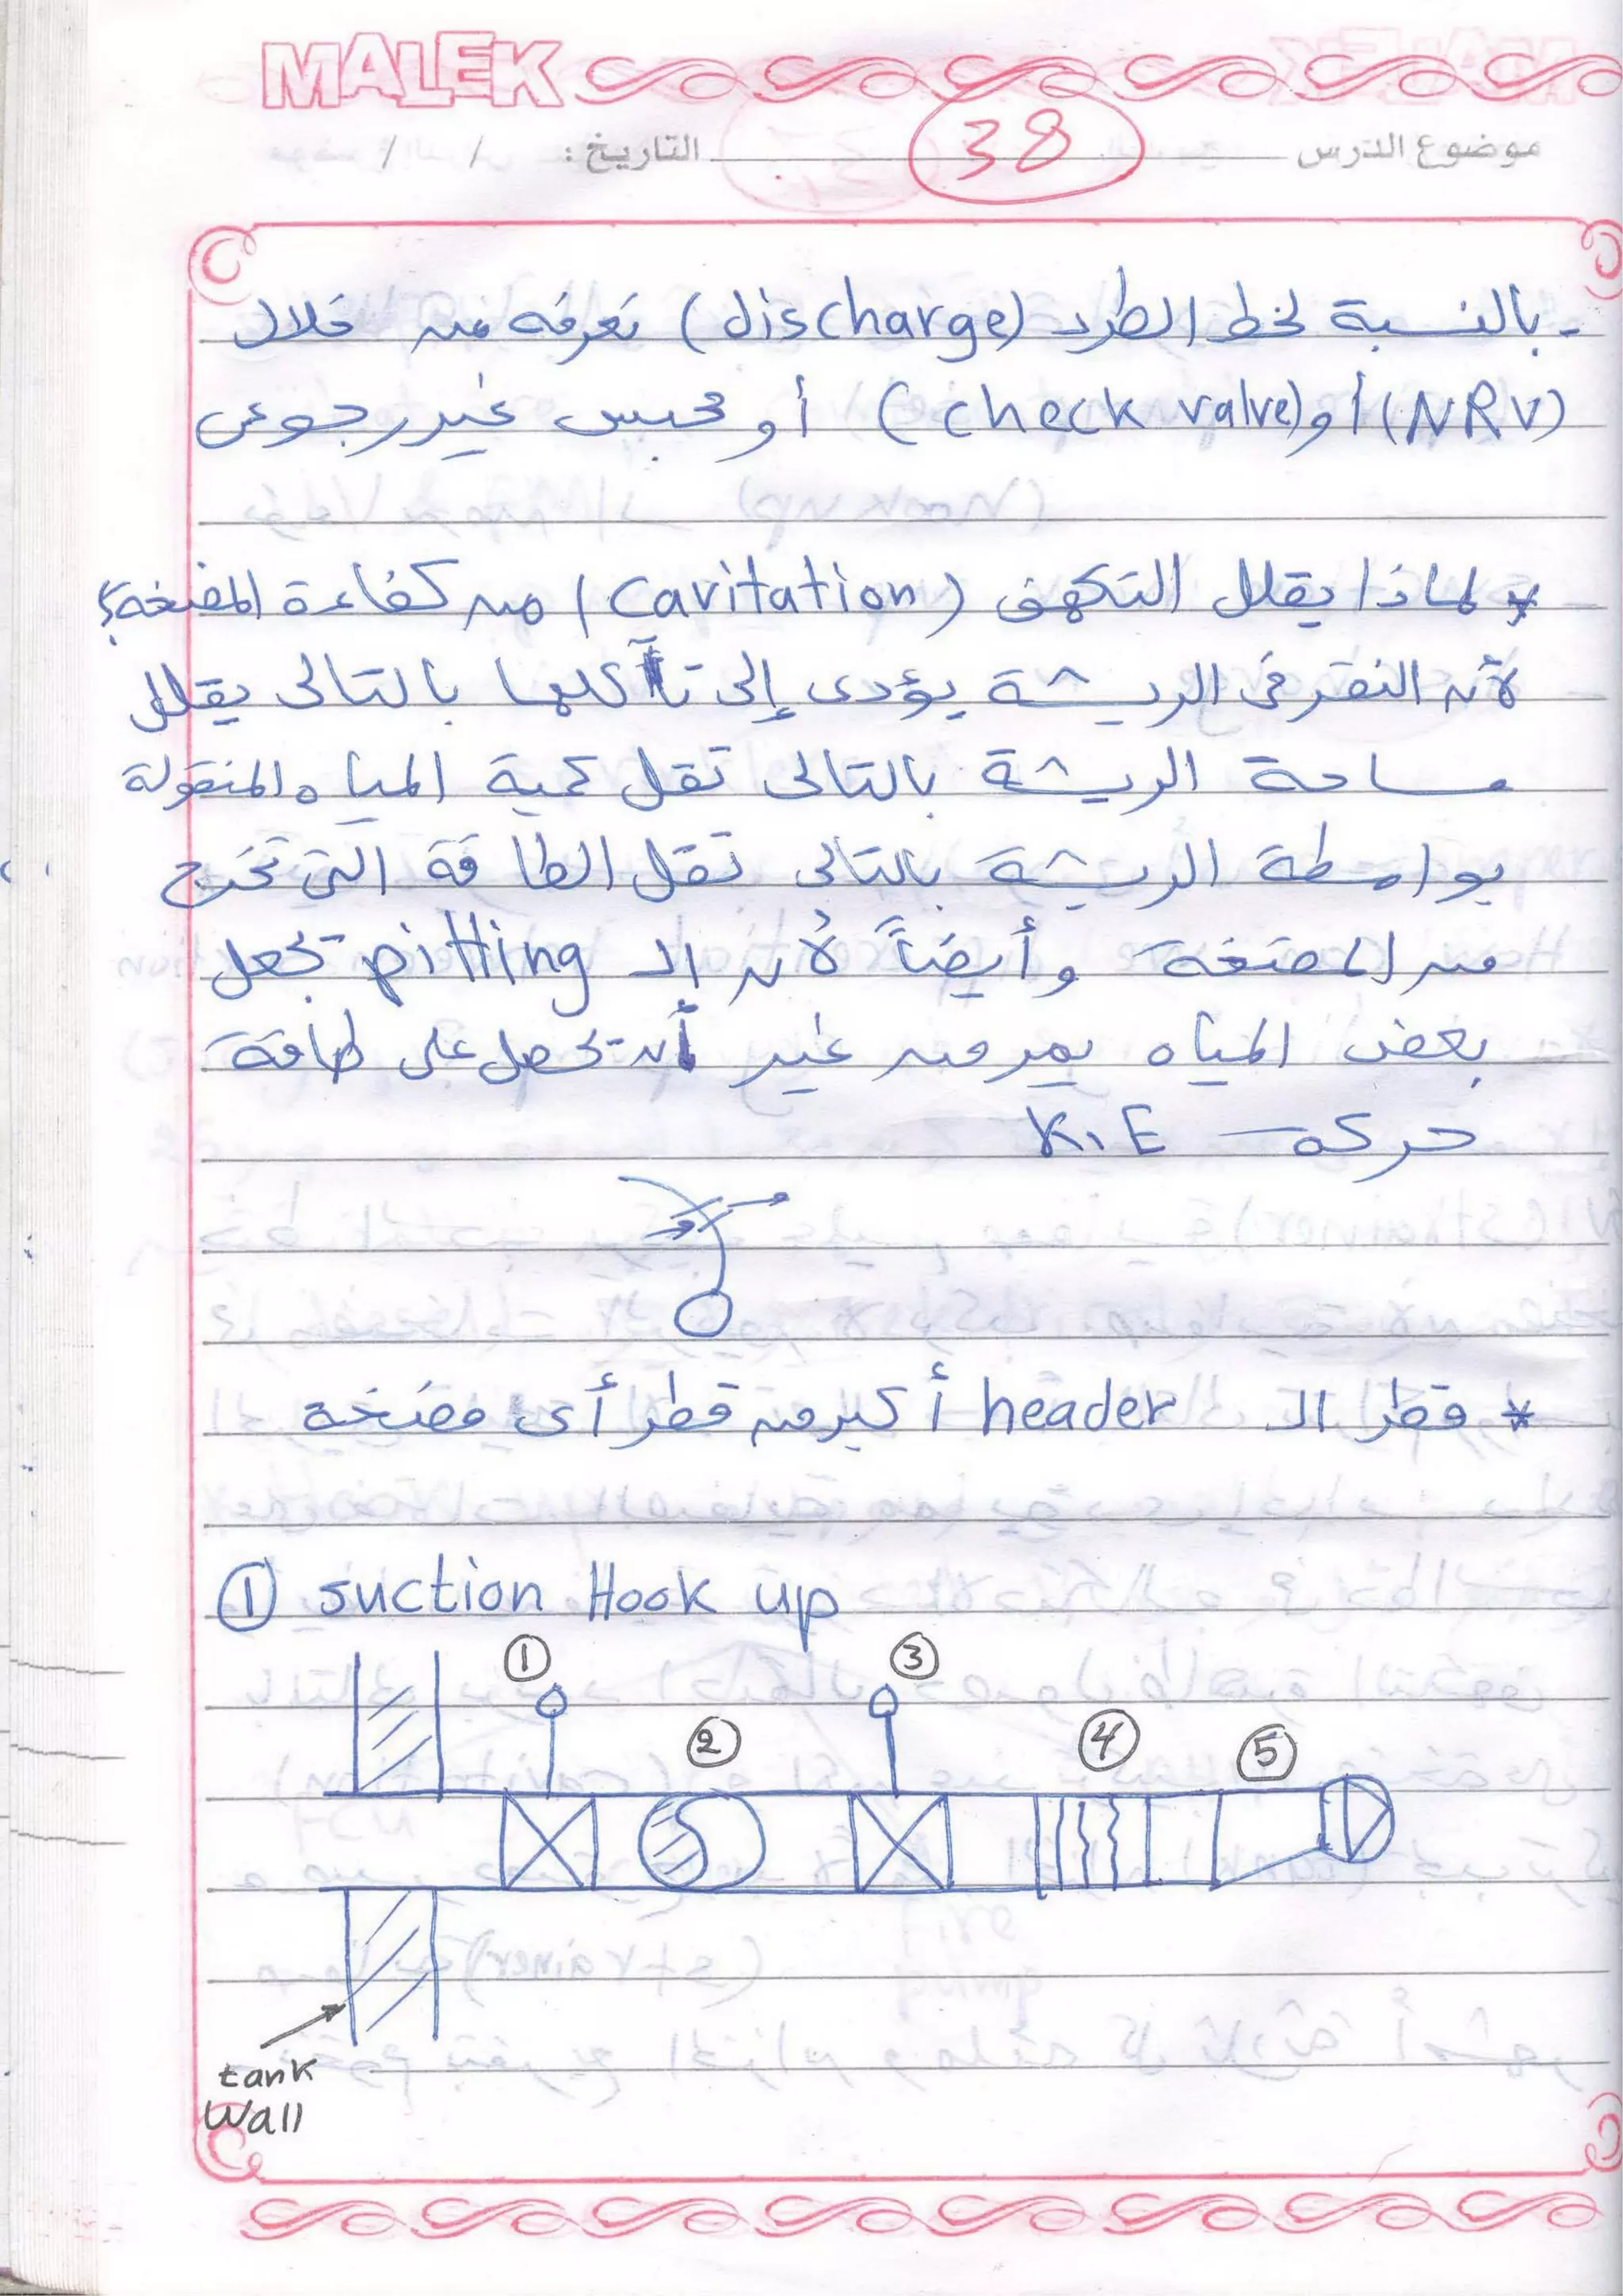 MALEK
موضوع الدرس 38 التاريخ: / /
- بالنسبة لخط الطرد (discharge) نعرفه من خلال
(NRV) أو (check valve) أو محبس غير رجوعى
* لماذا يقلل التكهف (cavitation) من كفاءة المضخة؟
لأن النقر فى الريشة يؤدى إلى تآكلها بالتالى يقلل
مساحة الريشة بالتالى تقل كمية المياه المنقولة
بواسطة الريشة بالتالى تقل الطاقة التى تخرج
من المضخة وأيضاً لأن الـ pitting تجعل
بعض المياه يمر من غير أن تحصل على طاقة
حركة K.E
* قطر الـ header أكبر من قطر أى مضخة
① suction Hook up
① ③
② ④ ⑤
tank
Wall